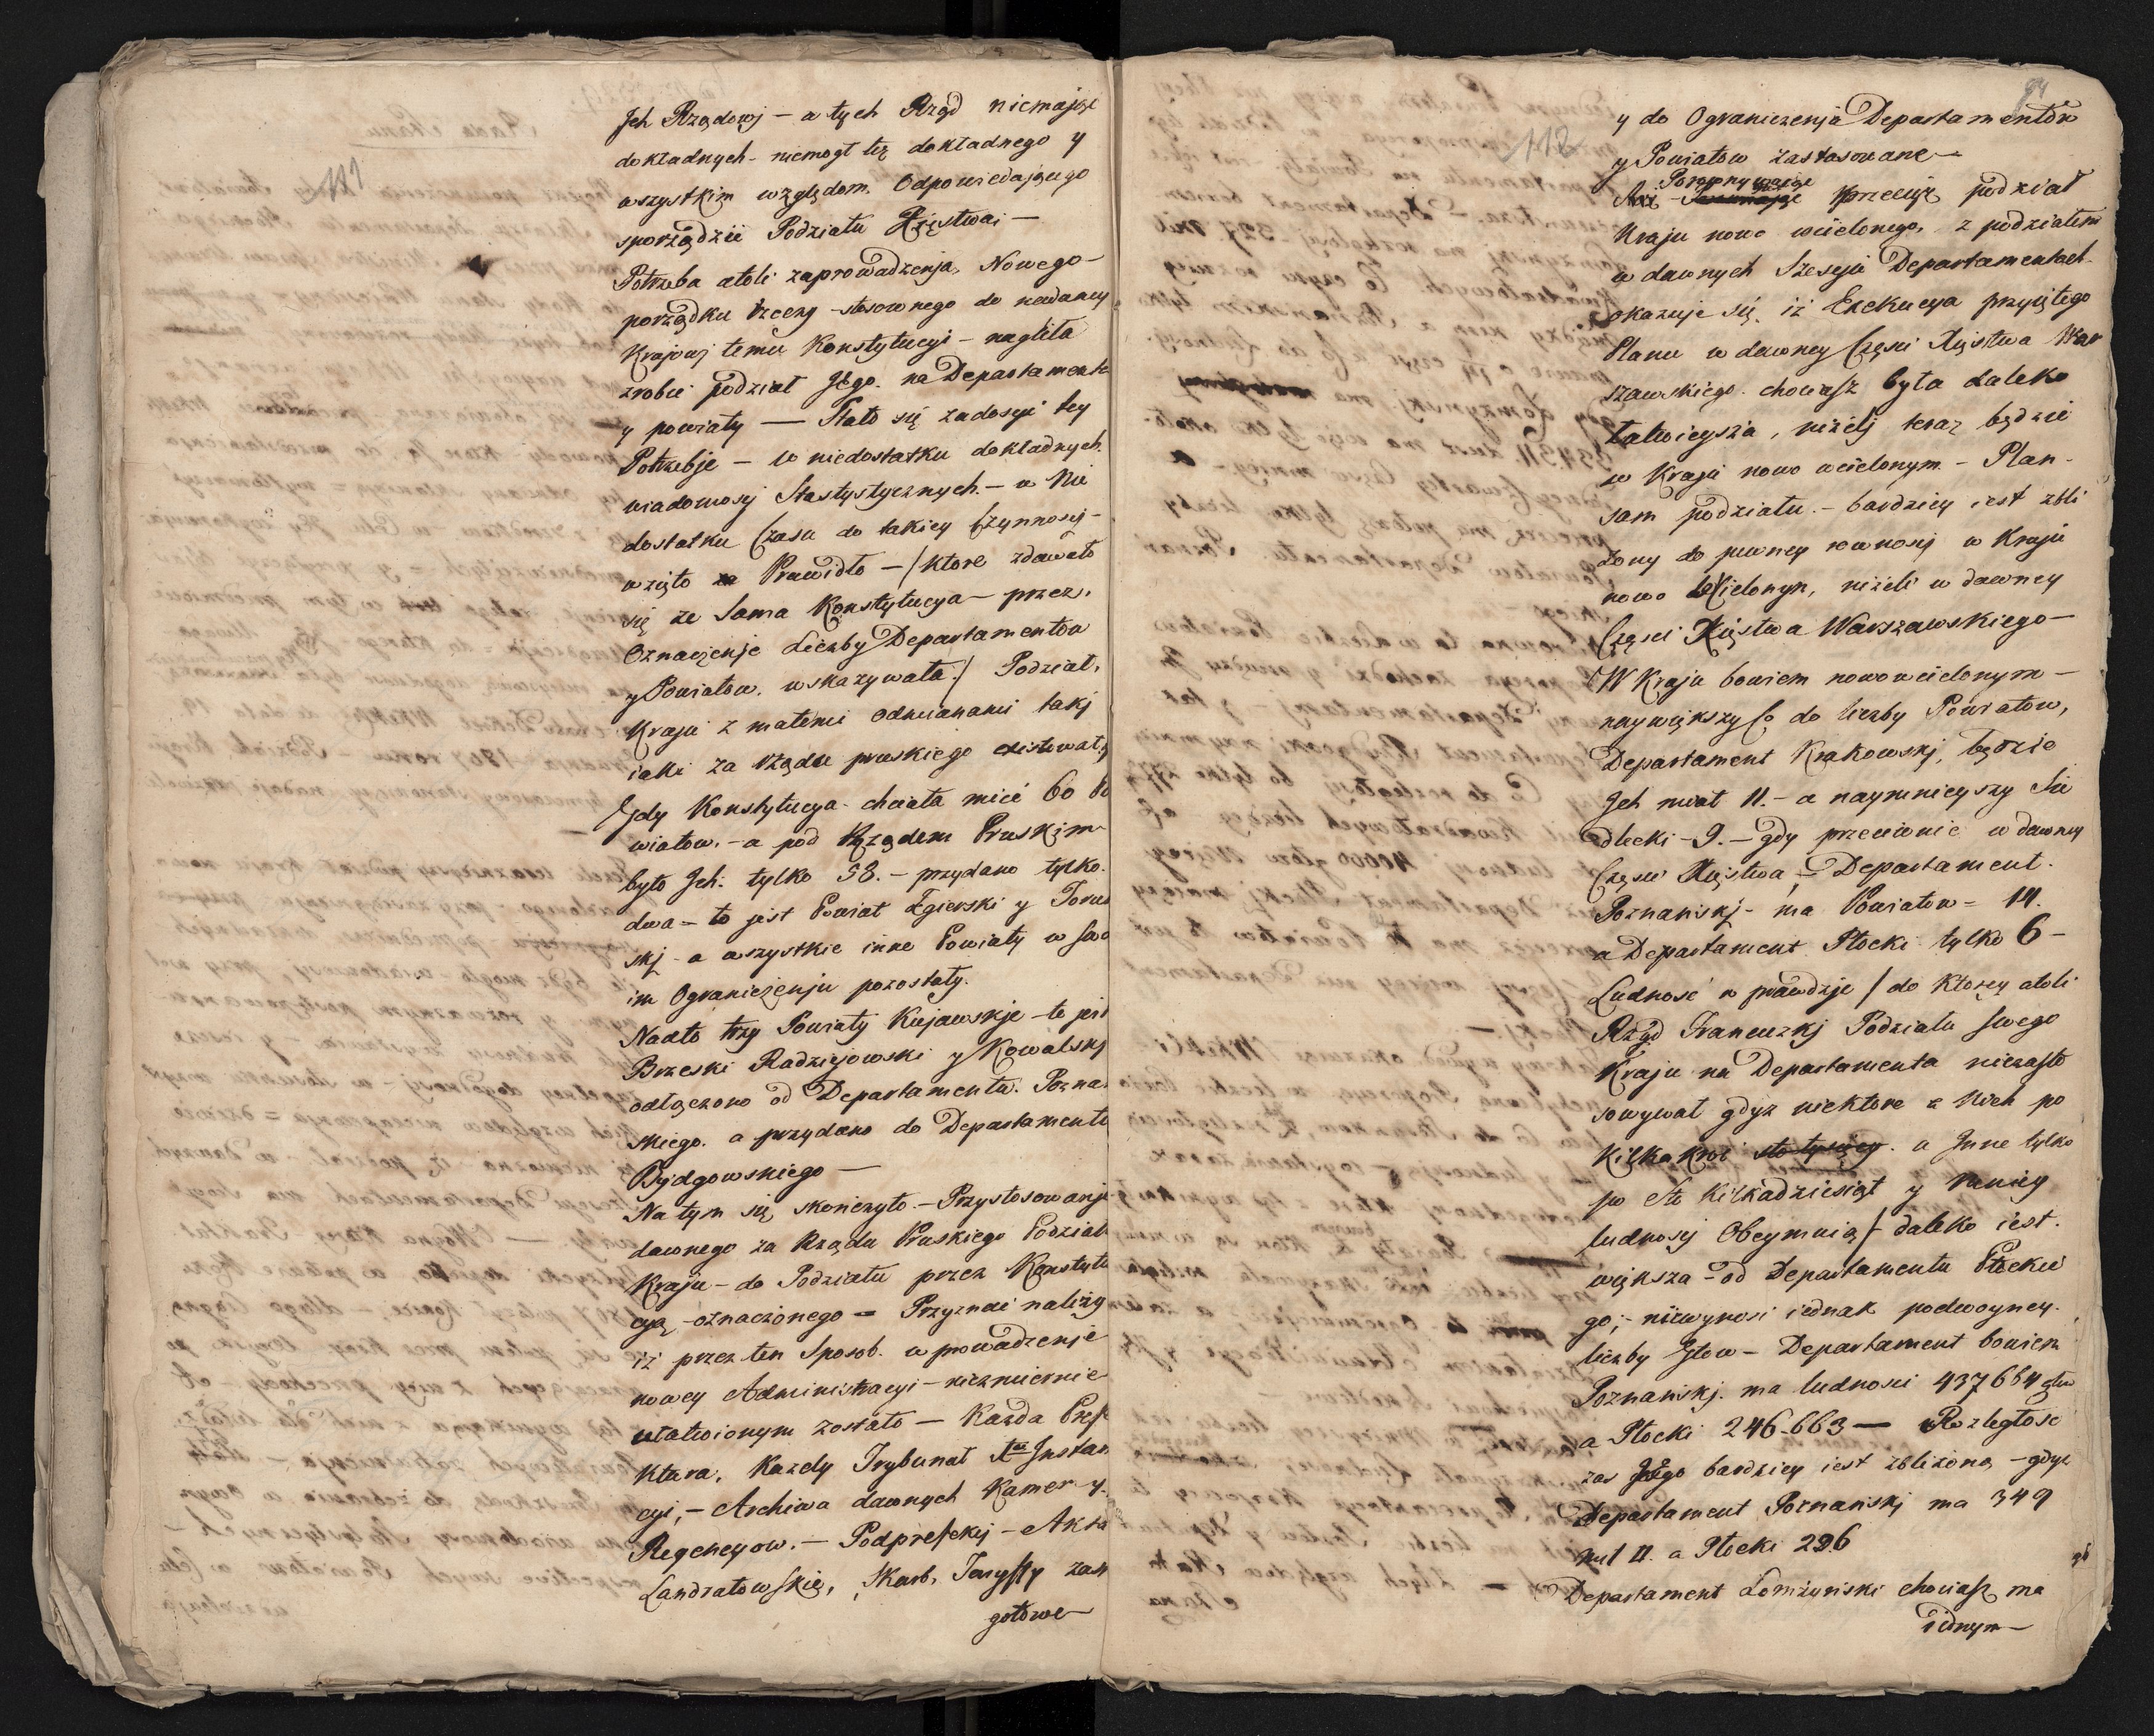 111
Jch Rządowj – a tych Rząd niemając
dokładnych – niemogł też dokładnego y
wszystkim względom Odpowiedaiącego
sporządzić Podziału Xięstwa; –
Potrzeba atoli zaprowadzenja Nowego –
porządku rzeczy – stosownego do nadaney
Krajowj temu Konstytucyi – nagliła
zrobić podział Jego. na Departamenta
y powiaty — Stało się zadosyć tey
Potrzebje – w niedostatku dokładnych
wiadomosj Stastystycznych – w Nie
dostatku Czasu do takiey Czynnosci –
wzięto za Prawidło – /: ktore zdawało
się ze Sama Konstytucya – przez
Oznaczenje Liczby Departamentow
y Powiatow. wskazywała :/ Podział,
Kraju z małemi odmianami takj
iaki za rządu pruskiego existował.
Gdy Konstytucya chciała mieć 60 Po
wiatow. – a pod Rządem Pruskim –
było Jch. tylko 58. – przydano tylko.
dwa – to jest Powiat Zgierski y Toruń
skj – a wszystkie inne Powiaty w swo
im Ograniczenju pozostały.
Nadto trzy Powiaty Kujawskje – to jest
Brzeski Radziejowski y Kowalskj
odłączono od Departamentu. Poznań
skiego. a przydano do Departamentu
Bydgowskiego —
Na tym się skończyło. – Przystosowanje
dawnego za Rządu Pruskiego Podziału
Kraju – do Podziału przez Konstytu
cyą – oznaczonego = Przyznać należy
iż przez ten Sposob. wprowadzenje
nowey Administracyi – niezmiernie
ułatwionym zostało — Kazda Prefe
ktura, Kazdy Trybunał Instan
cyi, – Archiwa dawnych Kamer y.
Regencyow. – Podprefekcj – Akta
Landratowskie, Skarb, Taryffy zas
gotowe –
112
y do Ograniczenja Departamentow
y Powiatow zastosowane —
Porownywaiąc
przeciję podział
Kraju nowo wcielonego, z podziałem
w dawnych Szesciu Departamentach
okazuje się, iż Exekucya przyiętego
Planu w dawney Częsci Xięstwa War
szawskiego. chociasz była daleko
Łatwieysza, niżelj teraz będzie
w Kraju nowo wcielonym. – Plan –
sam podziału. – bardziey iest zbli
żony do pewney rownosj w Kraju
nowo Wcielonym, niżeli w dawney
Częsci Xięstwa Warszawskiego –
W Kraju bowiem nowo wcielonym –
naywiększy Co do liczby Powiatow,
Departament Krakowskj, będzie
Jch miał 11. – a naymnieyszy Sie
dlecki – 9. – gdy przeciwnie w dawney
Częsci Xięstwa, – Departament.
Poznańskj – ma Powiatow = 14.
a Departament Płocki tylko 6 –
Ludność w prawdzje /: do Ktorey atoli
Rząd Francuzkj Podziału swego
Kraju na Departamenta niezasto
sowywał gdyz niektore z Nich po
Kilkakroć sto tysięcy. a Jnne tylko
po Sto Kilkadziesiąt y Mniey
ludnosci Obeymuią :/ daleko iest.
większa – od Departamentu Płockie
go; – niewynosi iednak podwoyney.
liczby Głow – Departament bowiem
Poznańskj. ma ludnosci 437664 głow
a Płocki 246.663 — Rozległosc
zas Jego bardziey iest zbliżoną – gdyz
Departament Poznańskj ma 349
mil □. a Płocki 296
Departament Łomżyński chociasz ma
iednym –